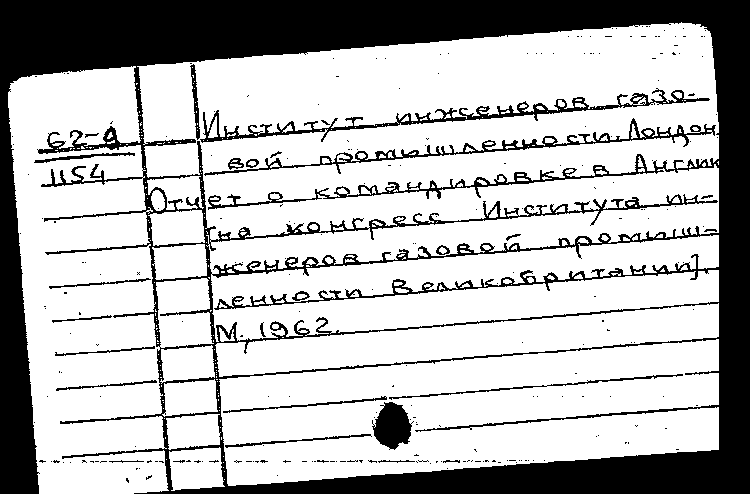 62-9
1154
Институт инженеров газо-
вой промышленности. Лондон.
Отчет о командировке в Англию
[на конгресс Института ин-
женеров газовой промыш-
ленности Великобритании].
М., 1962.